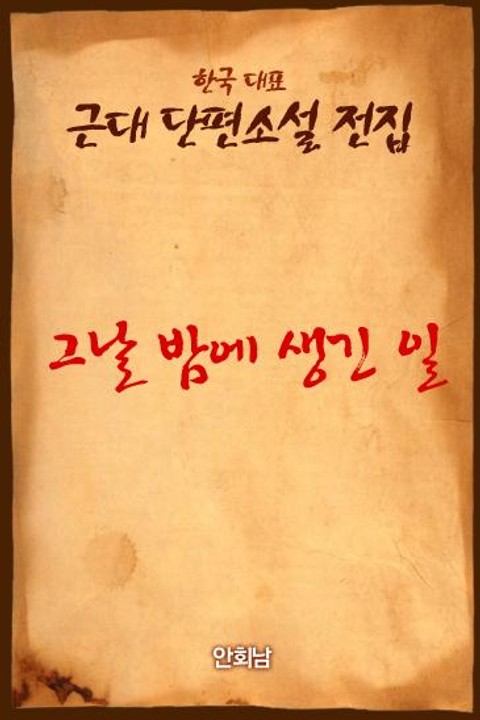 한국 대표
근대 단편소설 전집
그날 밤에 생긴 일
안회남